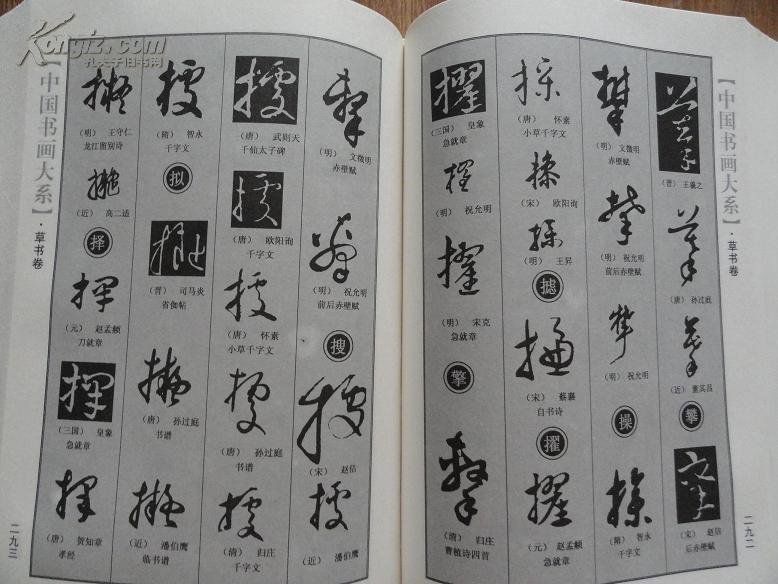 【中国书画大系】·草书卷
二九二
(晋) 王羲之
(唐) 孙过庭
(近) 董其昌
攀
(宋) 赵佶
后赤壁赋
(明) 文徵明
赤壁赋
(明) 祝允明
前后赤壁赋
(明) 祝允明
操
(隋) 智永
千字文
(唐) 怀素
小草千字文
(宋) 欧阳询
(明) 王昇
摅
(宋) 蔡襄
自书诗
擢
(元) 赵孟頫
急就章
(三国) 皇象
急就章
(明) 祝允明
(明) 宋克
急就章
擎
(清) 归庄
曹植诗四首
(明) 文徵明
赤壁赋
(明) 祝允明
前后赤壁赋
搜
(宋) 赵佶
(近) 潘伯鹰
(唐) 武则天
千仙太子碑
(唐) 欧阳询
千字文
(唐) 怀素
小草千字文
(唐) 孙过庭
书谱
(清) 归庄
千字文
(隋) 智永
千字文
拟
(晋) 司马炎
省伽帖
(唐) 孙过庭
书谱
(近) 潘伯鹰
临书谱
(明) 王守仁
龙江留别诗
(近) 高二适
择
(元) 赵孟頫
刀就章
(三国) 皇象
急就章
(唐) 贺知章
孝经
【中国书画大系】·草书卷
二九三
Kongfz.com
孔夫子旧书网